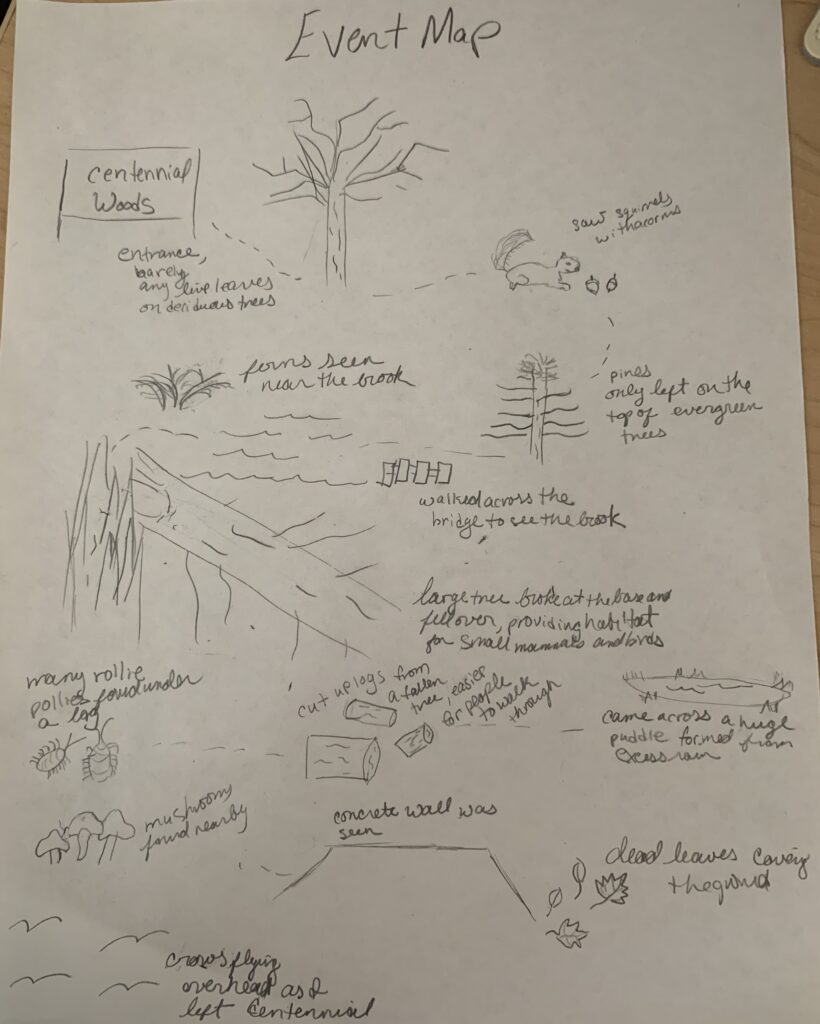 Event Map
Centennial
Woods
entrance,
barely
any live leaves
on deciduous trees
saw squirrels
with acorns
pines
only left on the
top of evergreen
trees
ferns seen
near the brook
walked across the
bridge to see the brook
large tree broke at the base and
fell over, providing habitat
for small mammals and birds
many rollie
pollies found under
a log
cut up logs from
a fallen
tree, easier
for people
to walk
through
came across a huge
puddle formed from
excess rain
mushrooms
found nearby
concrete wall was
seen
dead leaves covering
the ground
crows flying
overhead as I
left Centennial